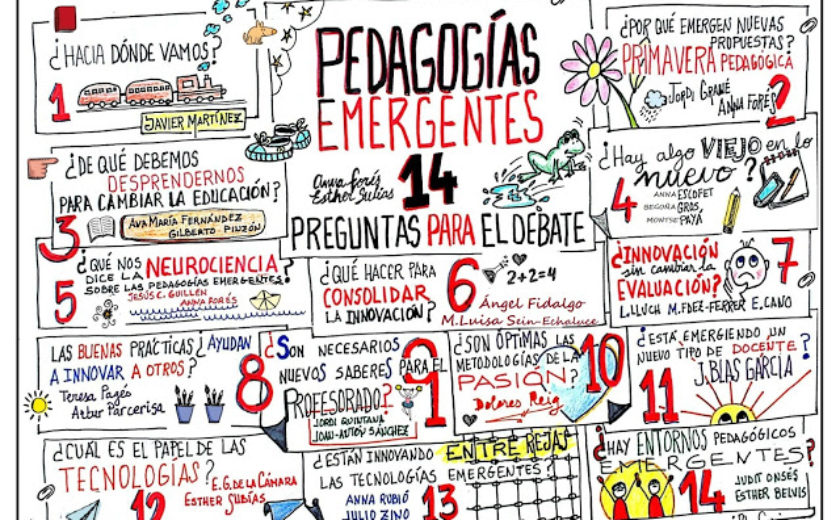 PEDAGOGÍAS
EMERGENTES
Anna Forés
Esther Subías
14
PREGUNTAS PARA EL DEBATE
¿HACIA DÓNDE VAMOS?
1
JAVIER MARTÍNEZ
¿POR QUÉ EMERGEN NUEVAS
PROPUESTAS?
PRIMAVERA PEDAGÓGICA
JORDI GRANÉ
ANNA FORÉS
2
¿DE QUÉ DEBEMOS
DESPRENDERNOS
PARA CAMBIAR LA EDUCACIÓN?
3
AVA MARÍA FERNÁNDEZ
GILBERTO PINZÓN
¿Hay algo VIEJO en lo
nuevo?
4
ANNA ESCOFET
BEGOÑA GROS
MONTSE PAYÀ
¿QUÉ NOS
DICE LA NEUROCIENCIA
SOBRE LAS PEDAGOGÍAS EMERGENTES?
5
JESÚS C. GUILLÉN
ANNA FORÉS
¿QUÉ HACER PARA
CONSOLIDAR
LA INNOVACIÓN?
6
2+2=4
Ángel Fidalgo
M. Luisa Sein-Echaluce
¿INNOVACIÓN
sin cambiar la
EVALUACIÓN?
7
L. LLUCH M. FDEZ-FERRER E. CANO
LAS BUENAS PRÁCTICAS ¿AYUDAN
A INNOVAR A OTROS?
8
Teresa Pagés
Artur Parcerisa
¿SON NECESARIOS
NUEVOS SABERES PARA EL
PROFESORADO?
9
JORDI QUINTANA
JOAN-ANTON SÁNCHEZ
¿SON ÓPTIMAS LAS
METODOLOGÍAS DE LA
PASIÓN?
10
Dolores Reig
¿ESTÁ EMERGIENDO UN
NUEVO TIPO DE DOCENTE?
11
J. BLAS GARCÍA
¿CUÁL ES EL PAPEL DE LAS
TECNOLOGÍAS?
12
E.G. DE LA CÁMARA
ESTHER SUBÍAS
¿ESTÁN INNOVANDO ENTRE REJAS
LAS TECNOLOGÍAS EMERGENTES?
13
ANNA RUBIÓ
JULIO ZINO
¿HAY ENTORNOS PEDAGÓGICOS
EMERGENTES?
14
JUDIT ONSÈS
ESTHER BELVIS